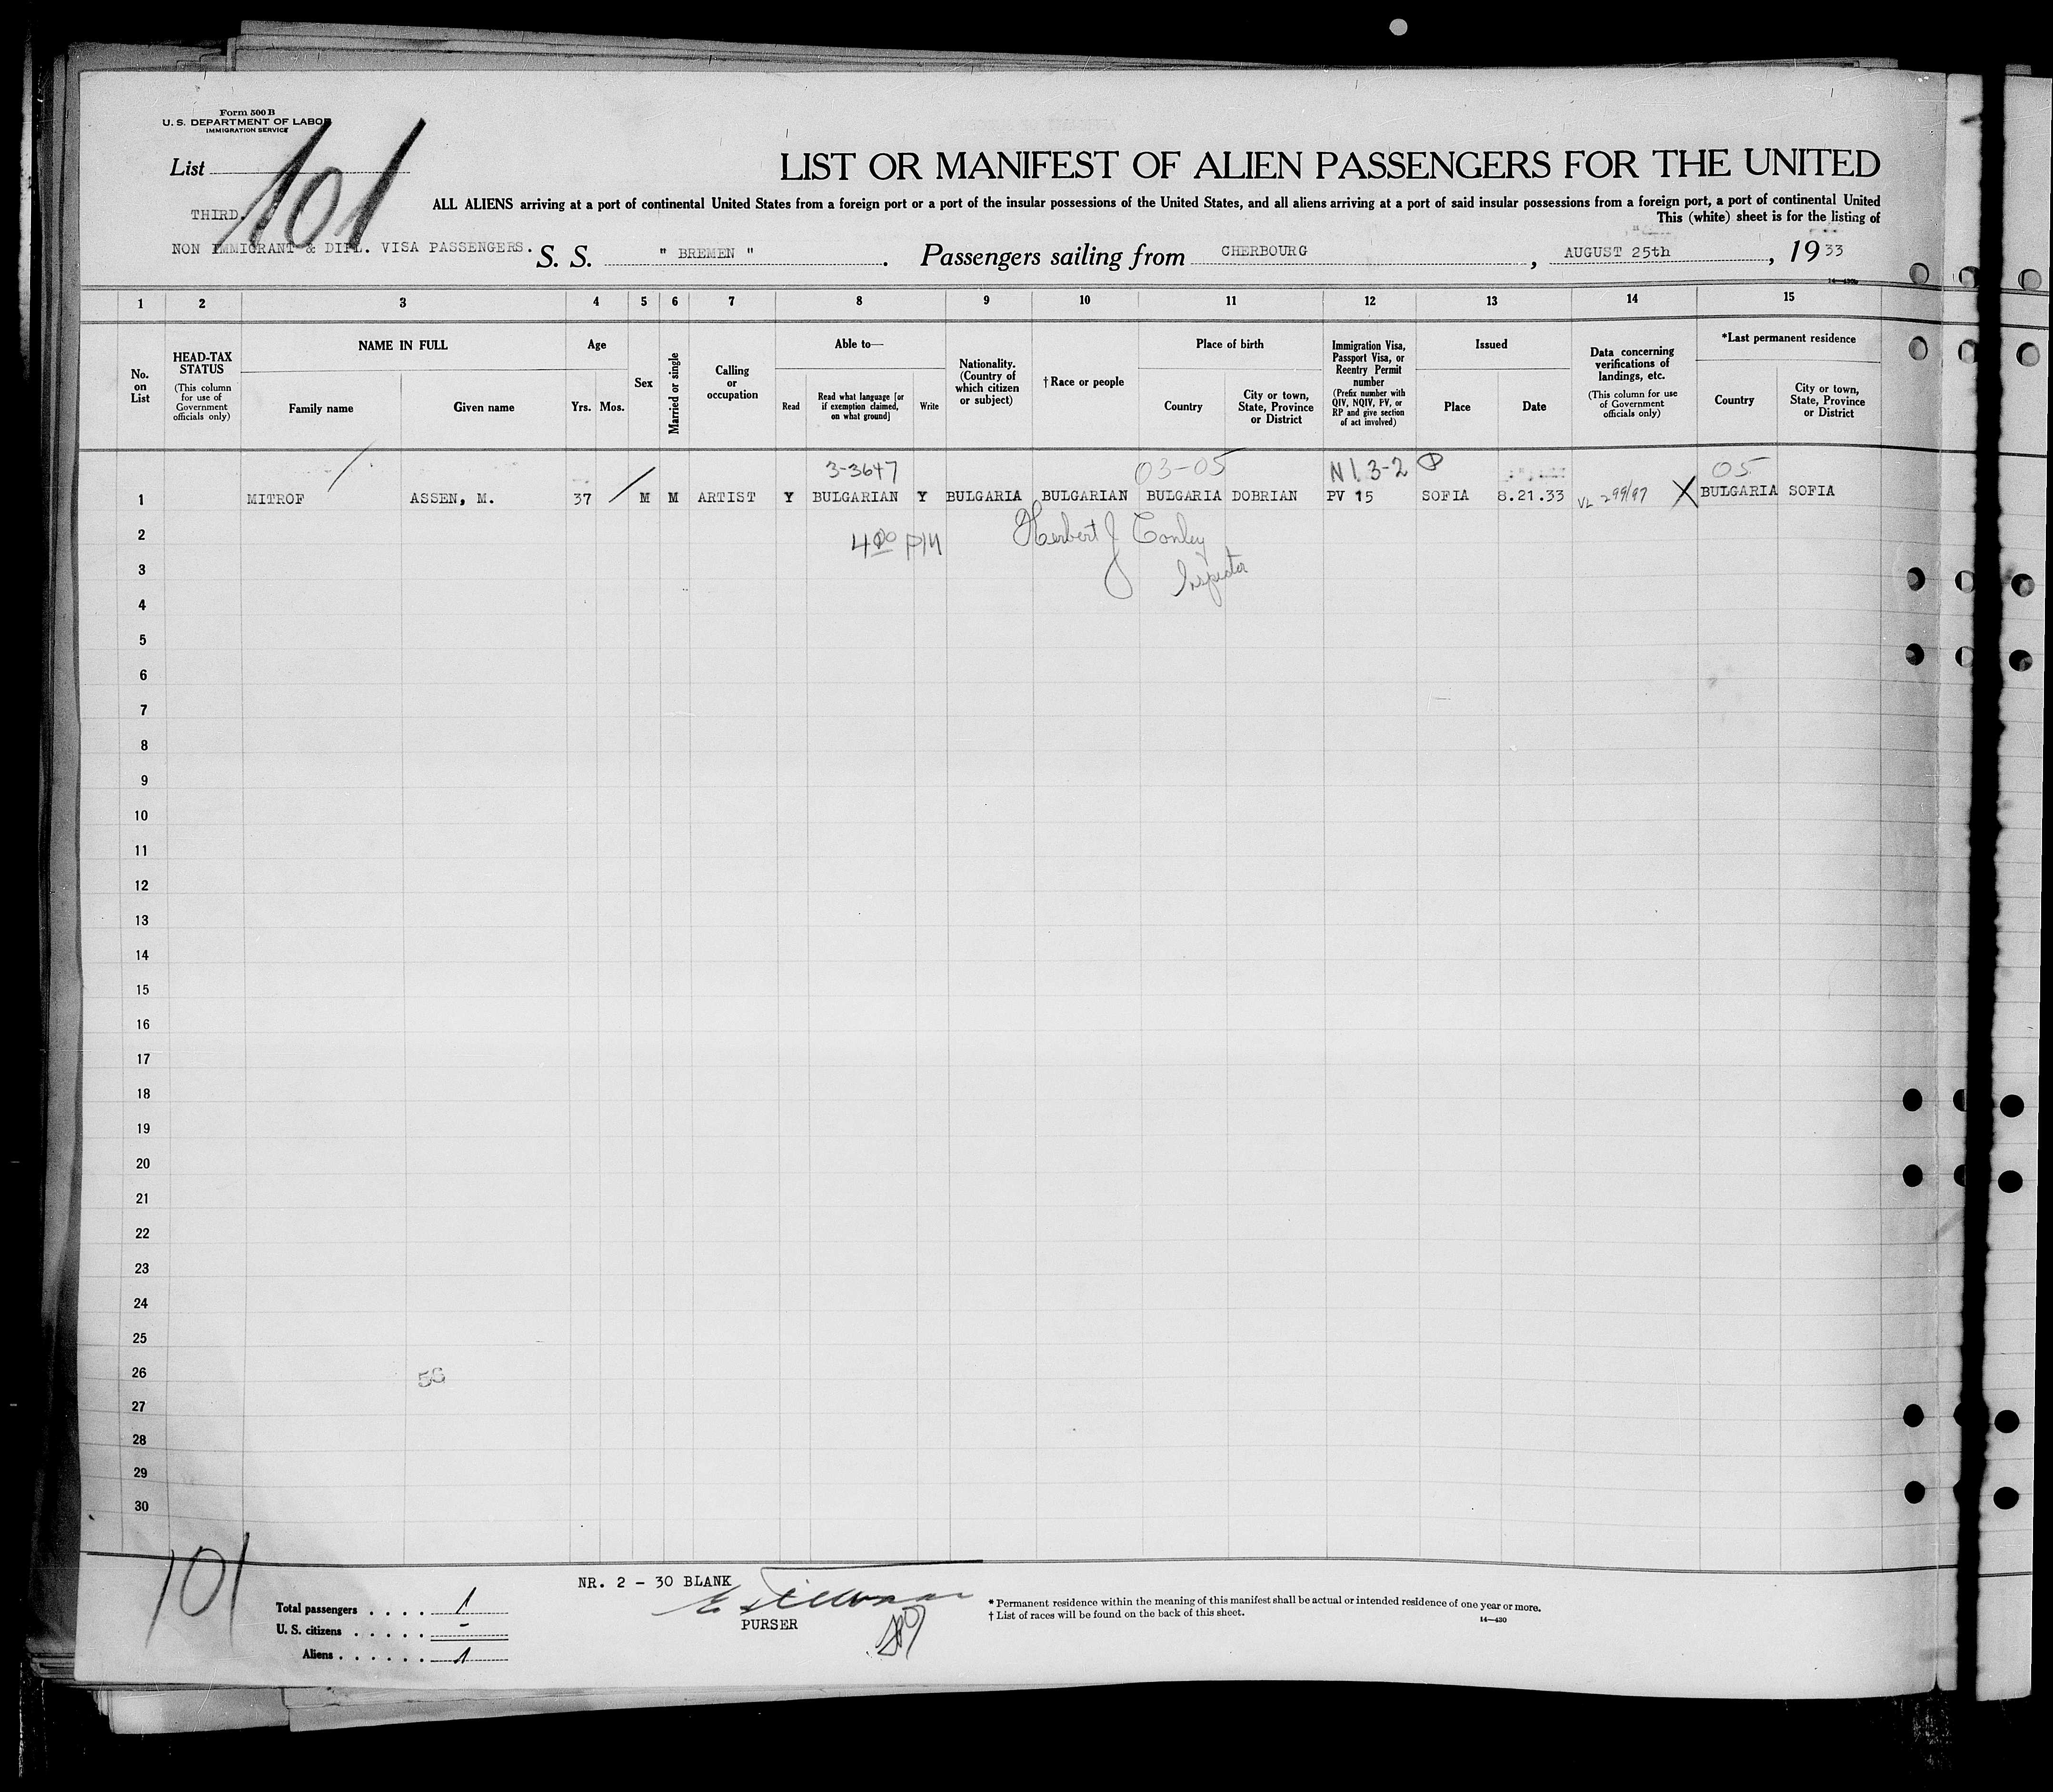 Form 500 B
U. S. DEPARTMENT OF LABOR
IMMIGRATION SERVICE
List 101
LIST OR MANIFEST OF ALIEN PASSENGERS FOR THE UNITED
ALL ALIENS arriving at a port of continental United States from a foreign port or a port of the insular possessions of the United States, and all aliens arriving at a port of said insular possessions from a foreign port, a port of continental United
THIRD.
This (white) sheet is for the listing of
NON IMMIGRANT & DIPL. VISA PASSENGERS. S. S. " BREMEN " . Passengers sailing from CHERBOURG , AUGUST 25th , 19 33
1 2 3 4 5 6 7 8 9 10 11 12 13 14 15
No. on List
HEAD-TAX STATUS
(This column for use of Government officials only)
NAME IN FULL
Family name
Given name
Age
Yrs. Mos.
Sex
Married or single
Calling or occupation
Able to—
Read
Read what language [or if exemption claimed, on what ground]
Write
Nationality. (Country of which citizen or subject)
† Race or people
Place of birth
Country
City or town, State, Province or District
Immigration Visa, Passport Visa, or Reentry Permit number
(Prefix number with QIV, NQIV, PV, or RP and give section of act involved)
Issued
Place
Date
Data concerning verifications of landings, etc.
(This column for use of Government officials only)
*Last permanent residence
Country
City or town, State, Province or District
3-3647 03-05 N 1. 3-2 05
1 MITROF ASSEN, M. 37 M M ARTIST Y BULGARIAN Y BULGARIA BULGARIAN BULGARIA DOBRIAN PV 15 SOFIA 8.21.33 VL 299/97 X BULGARIA SOFIA
2 4 00 PM Herbert J Conley
3 Inspector
4
5
6
7
8
9
10
11
12
13
14
15
16
17
18
19
20
21
22
23
24
25
26
27
28
29
30
101
NR. 2 - 30 BLANK
PURSER
Total passengers . . . . 1
U. S. citizens . . . . . -
Aliens . . . . . . 1
* Permanent residence within the meaning of this manifest shall be actual or intended residence of one year or more.
† List of races will be found on the back of this sheet.
14—430